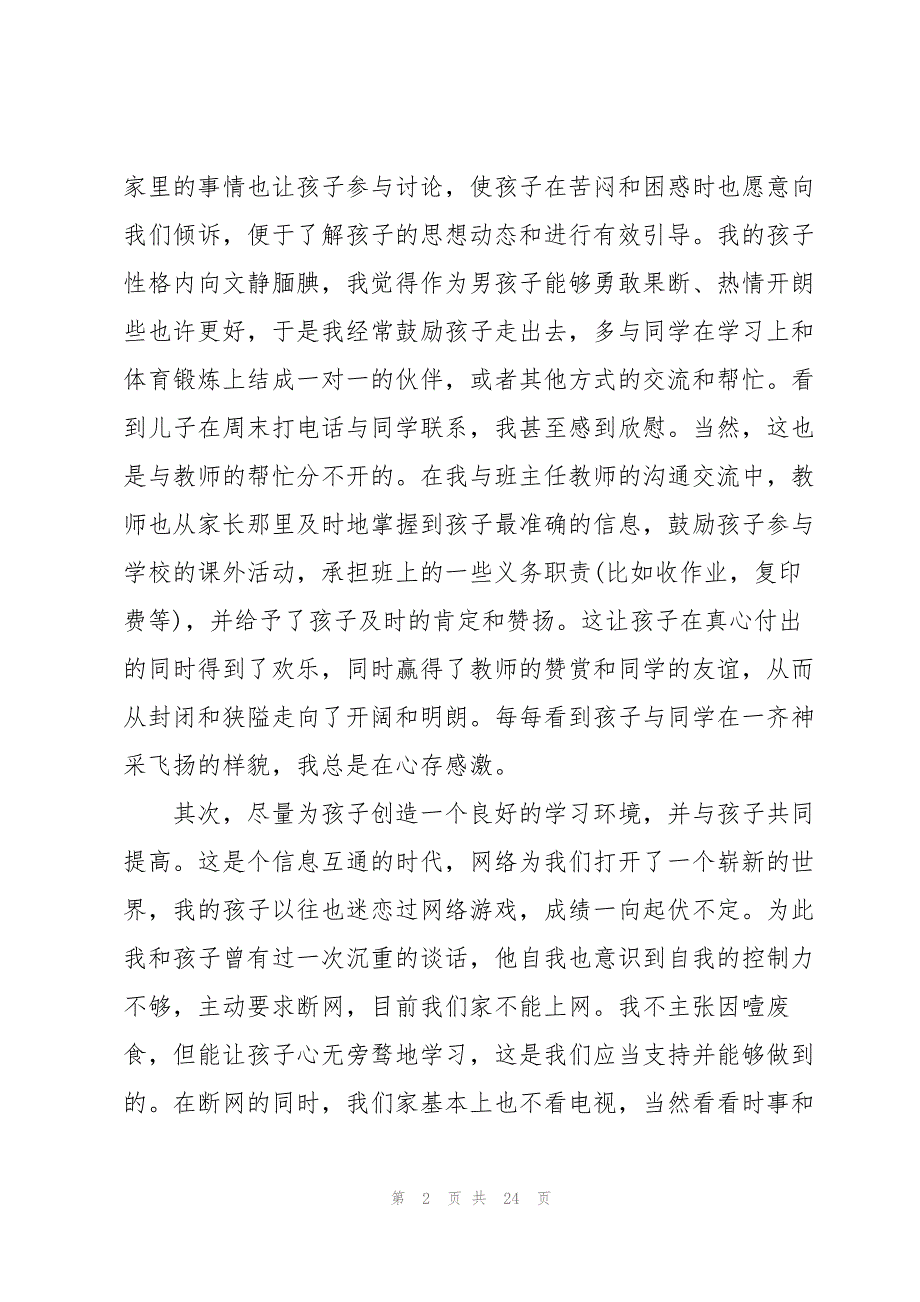 家里的事情也让孩子参与讨论，使孩子在苦闷和困惑时也愿意向
我们倾诉，便于了解孩子的思想动态和进行有效引导。我的孩子
性格内向文静腼腆，我觉得作为男孩子能够勇敢果断、热情开朗
些也许更好，于是我经常鼓励孩子走出去，多与同学在学习上和
体育锻炼上结成一对一的伙伴，或者其他方式的交流和帮忙。看
到儿子在周末打电话与同学联系，我甚至感到欣慰。当然，这也
是与教师的帮忙分不开的。在我与班主任教师的沟通交流中，教
师也从家长那里及时地掌握到孩子最准确的信息，鼓励孩子参与
学校的课外活动，承担班上的一些义务职责(比如收作业，复印
费等)，并给予了孩子及时的肯定和赞扬。这让孩子在真心付出
的同时得到了欢乐，同时赢得了教师的赞赏和同学的友谊，从而
从封闭和狭隘走向了开阔和明朗。每每看到孩子与同学在一齐神
采飞扬的样貌，我总是在心存感激。
其次，尽量为孩子创造一个良好的学习环境，并与孩子共同
提高。这是个信息互通的时代，网络为我们打开了一个崭新的世
界，我的孩子以往也迷恋过网络游戏，成绩一向起伏不定。为此
我和孩子曾有过一次沉重的谈话，他自我也意识到自我的控制力
不够，主动要求断网，目前我们家不能上网。我不主张因噎废
食，但能让孩子心无旁骛地学习，这是我们应当支持并能够做到
的。在断网的同时，我们家基本上也不看电视，当然看看时事和
第 2 页 共 24 页